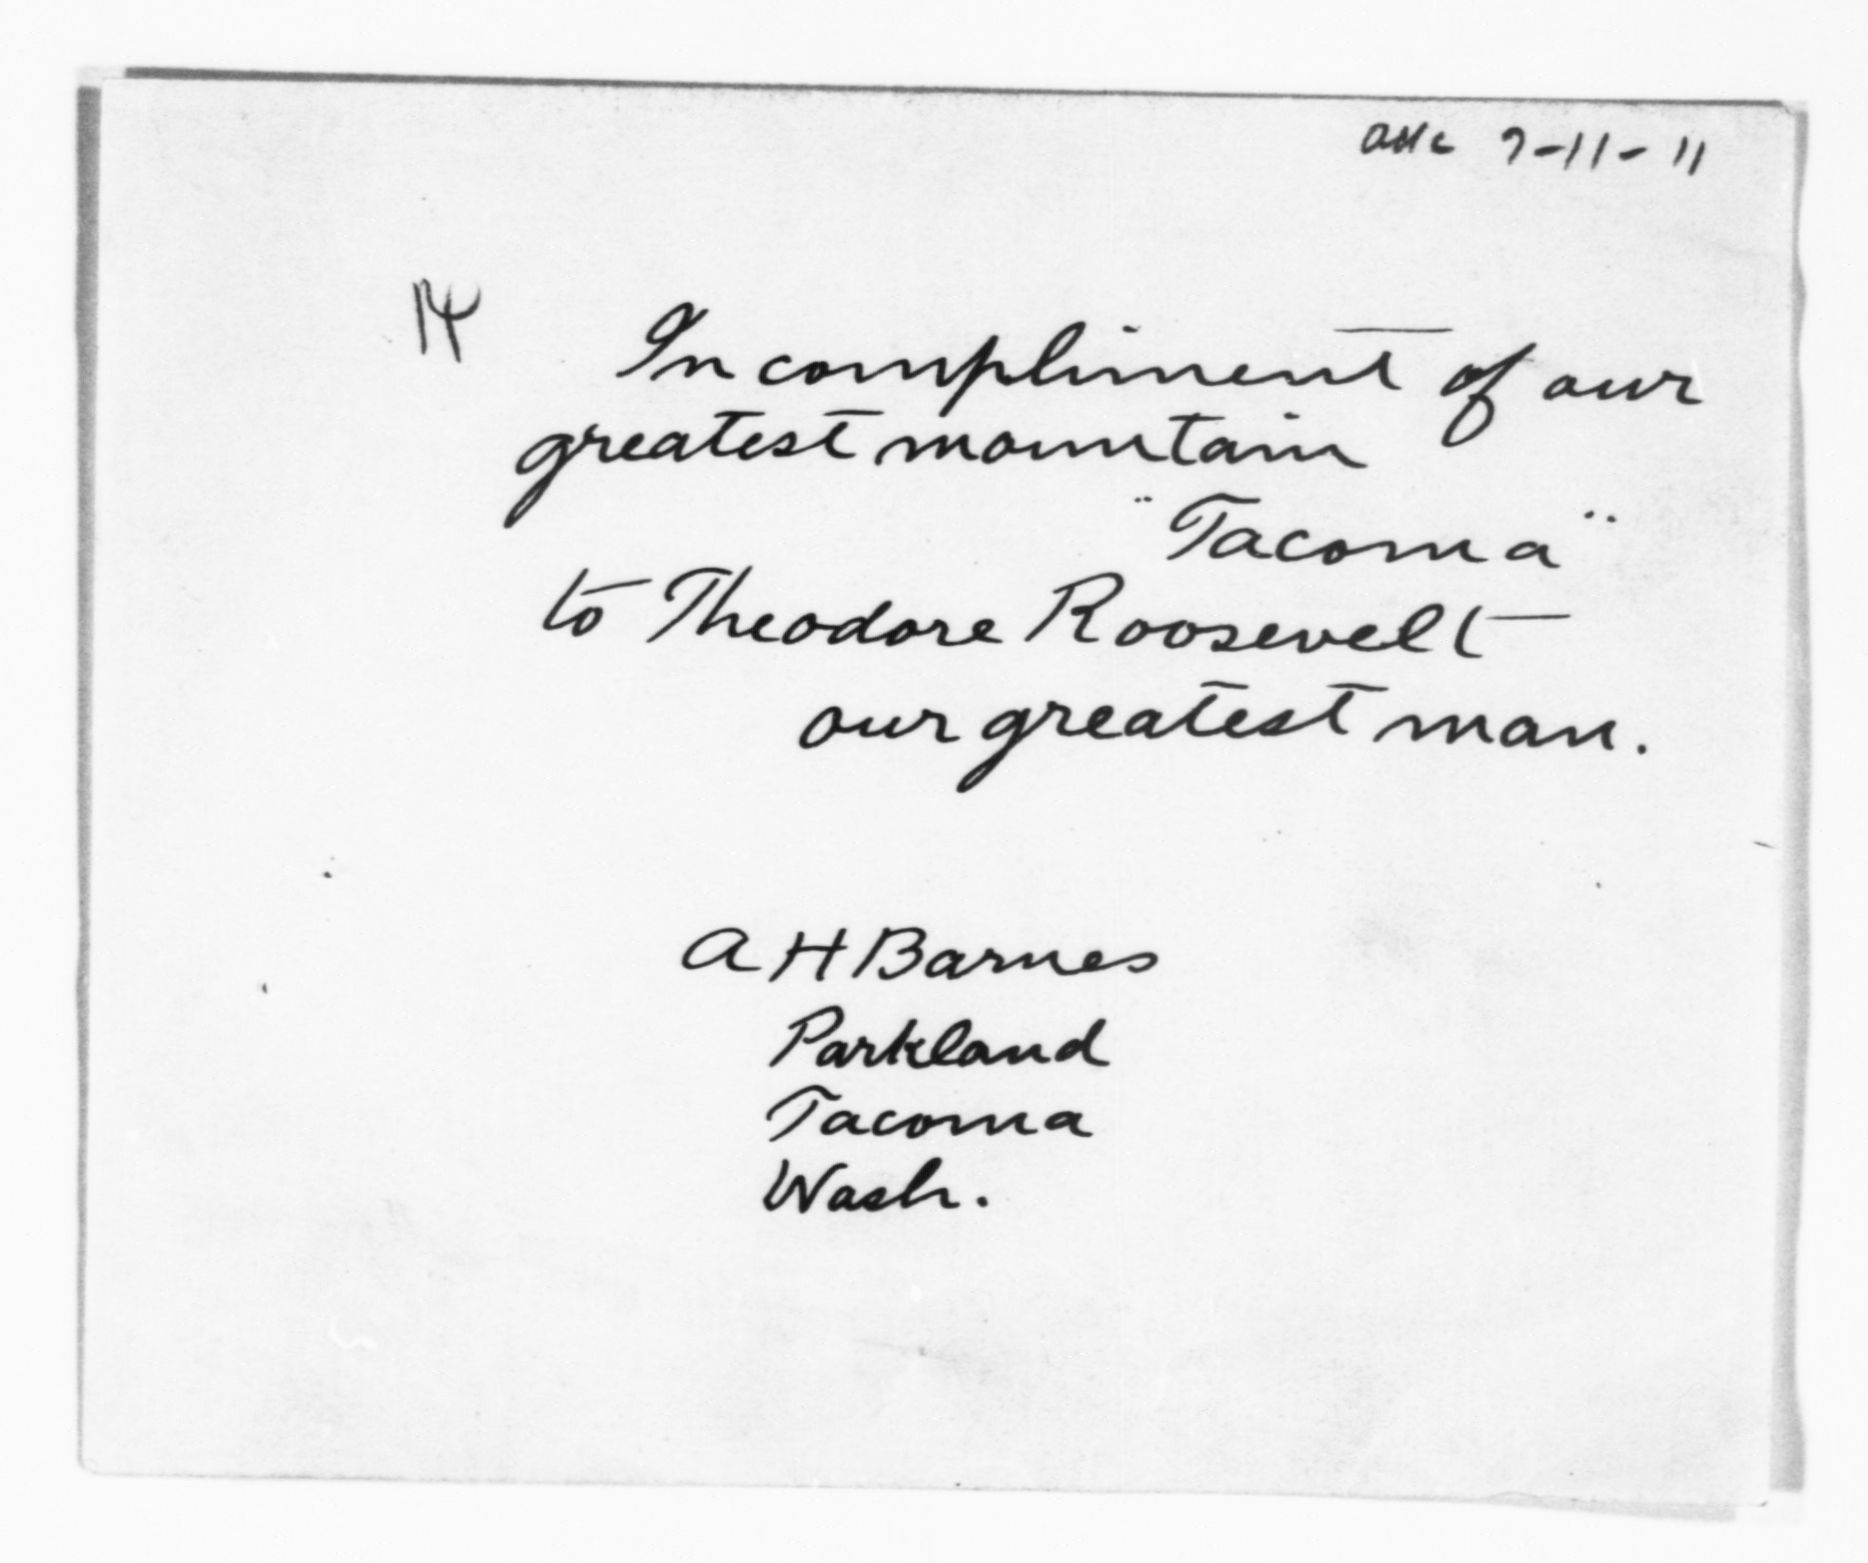 7-11-11
In compliment of our
greatest mountain
"Tacoma"
to Theodore Roosevelt
our greatest man.
A H Barnes
Parkland
Tacoma
Wash.